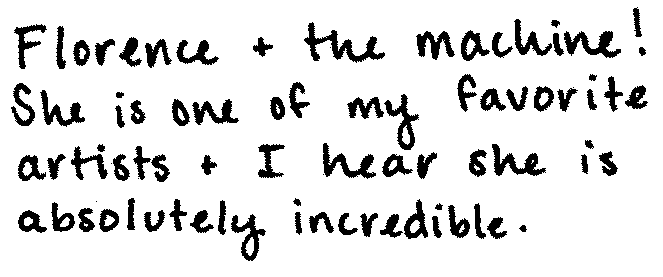 Florence + the machine!
She is one of my favorite
artists + I hear she is
absolutely incredible.